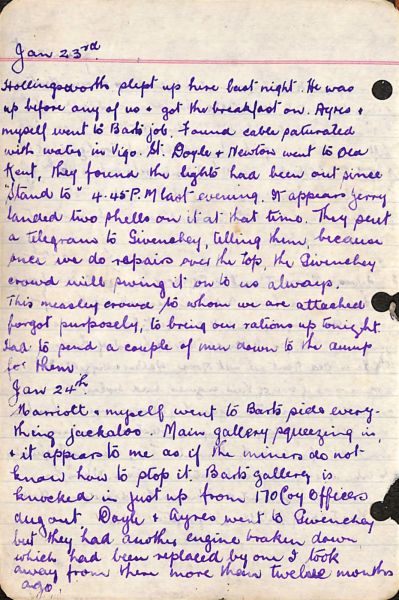 Jan 23rd
Hollingsworths slept up here last night. He was
up before any of us & got the breakfast on. Ayres &
myself went to Barts job. Found cable saturated
with water, in Vigo. St. Doyle & Newton went to Old
Kent, they found the lights had been out since
"Stand to" 4.45 P.M last evening. It appears Jerry
landed two shells on it at that time. They sent
a telegram to Givenchey, telling them, because
once we do repairs over the top, the Givenchey
crowd will swing it on to us always.
This measley crowd to whom we are attached
forgot purposely, to bring our rations up tonight.
Had to send a couple of men down to the dump
for them.
Jan 24th
Marriott & myself went to Barts side every-
thing jackaloo. Main gallery squeezing in,
& it appears to me as if the miners do not
know how to stop it. Barts gallery is
knocked in just up from 170 Coy Officers
dug out. Doyle & Ayres went to Givenchey
but they had another engine broken down
which had been replaced by one I took
away from there more than twelve months
ago.